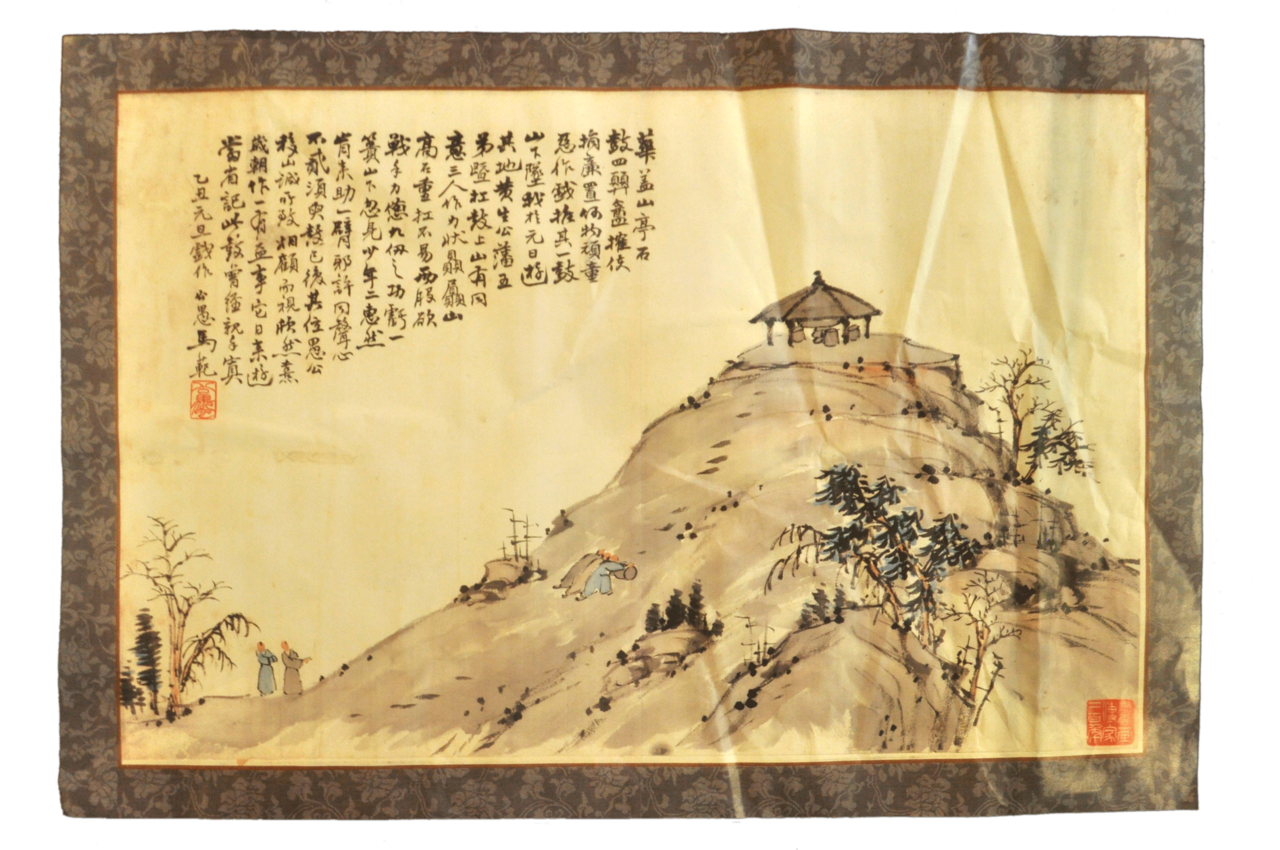 華蓋山亭石
鼓四興盡摧佚
摘廉置何物頑童
惡作戲推其一鼓
山下墜我於元日遊
其地黃生公藩五
弟暨扛鼓上山有同
意三人作力狀贔屭山
高石重扛不易兩股欲
戰手力憊九仞之功虧一
簣山下忽見少年二惠然
肯來助一臂邪許同聲心
不貳須臾鼓已復其位愚公
移山誠所致相顧而視欣然熹
歲朝作一有益事它日來遊
當省記此鼓曾經親手寘
乙丑元旦戲作 公愚馬範